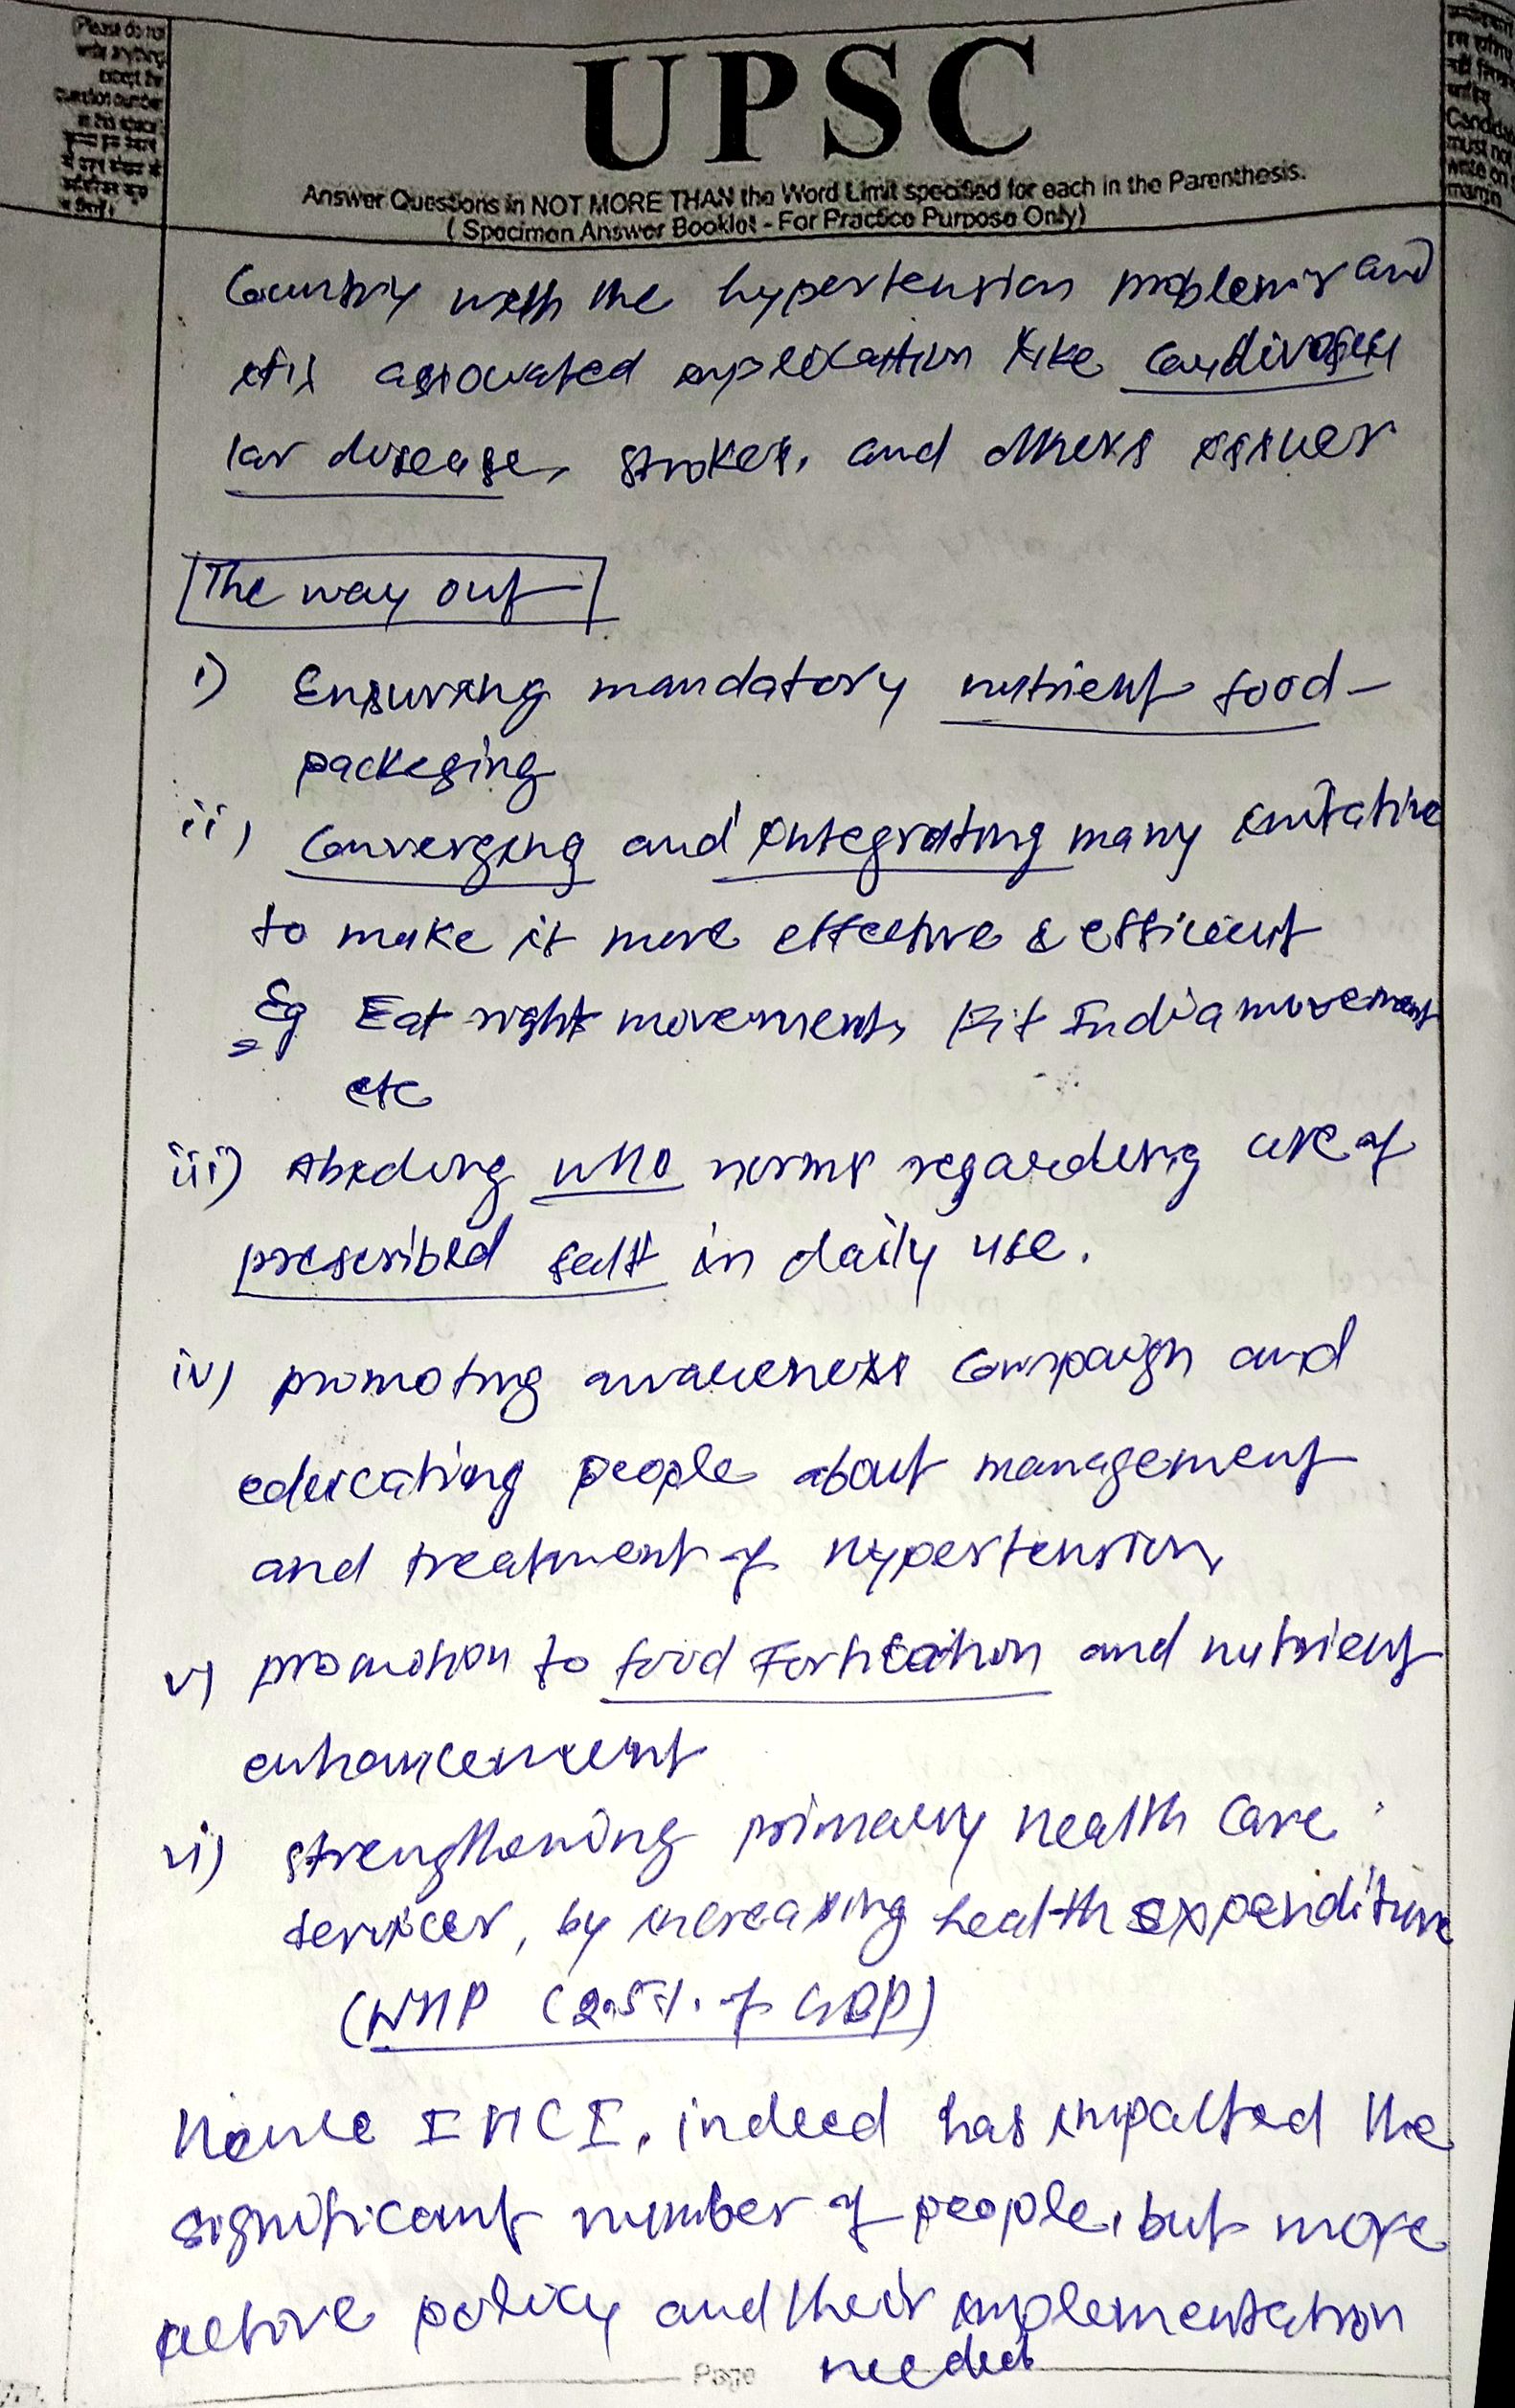 (Please do not
write anything
except the
question number
in this space
UPSC
Answer Questions in NOT MORE THAN the Word Limit specified for each in the Parenthesis.
( Specimen Answer Booklet - For Practice Purpose Only)
Candidates
must not
write on
margin
Country with the hypertension problems and
its associated implication like cardivascu
lar disease, strokes, and others issues
The way out
i) Ensuring mandatory nutrient food-
packeging
ii) Converging and integrating many initative
to make it more effective & efficient
Eg Eat right movement, Fit India movement
etc
iii) Abiding WHO norms regarding use of
prescribed salt in daily use.
iv) promoting awareness campaign and
educating people about management
and treatment of hypertension
v) promotion to food Fortication and nutrient
enhancement
vi) strengthening primary health care
services, by increasing health expenditure
(NHP (2.5% of GDP)
Hence IHCI, indeed has impacted the
significant number of people, but more
active policy and their implementation
needed
Page